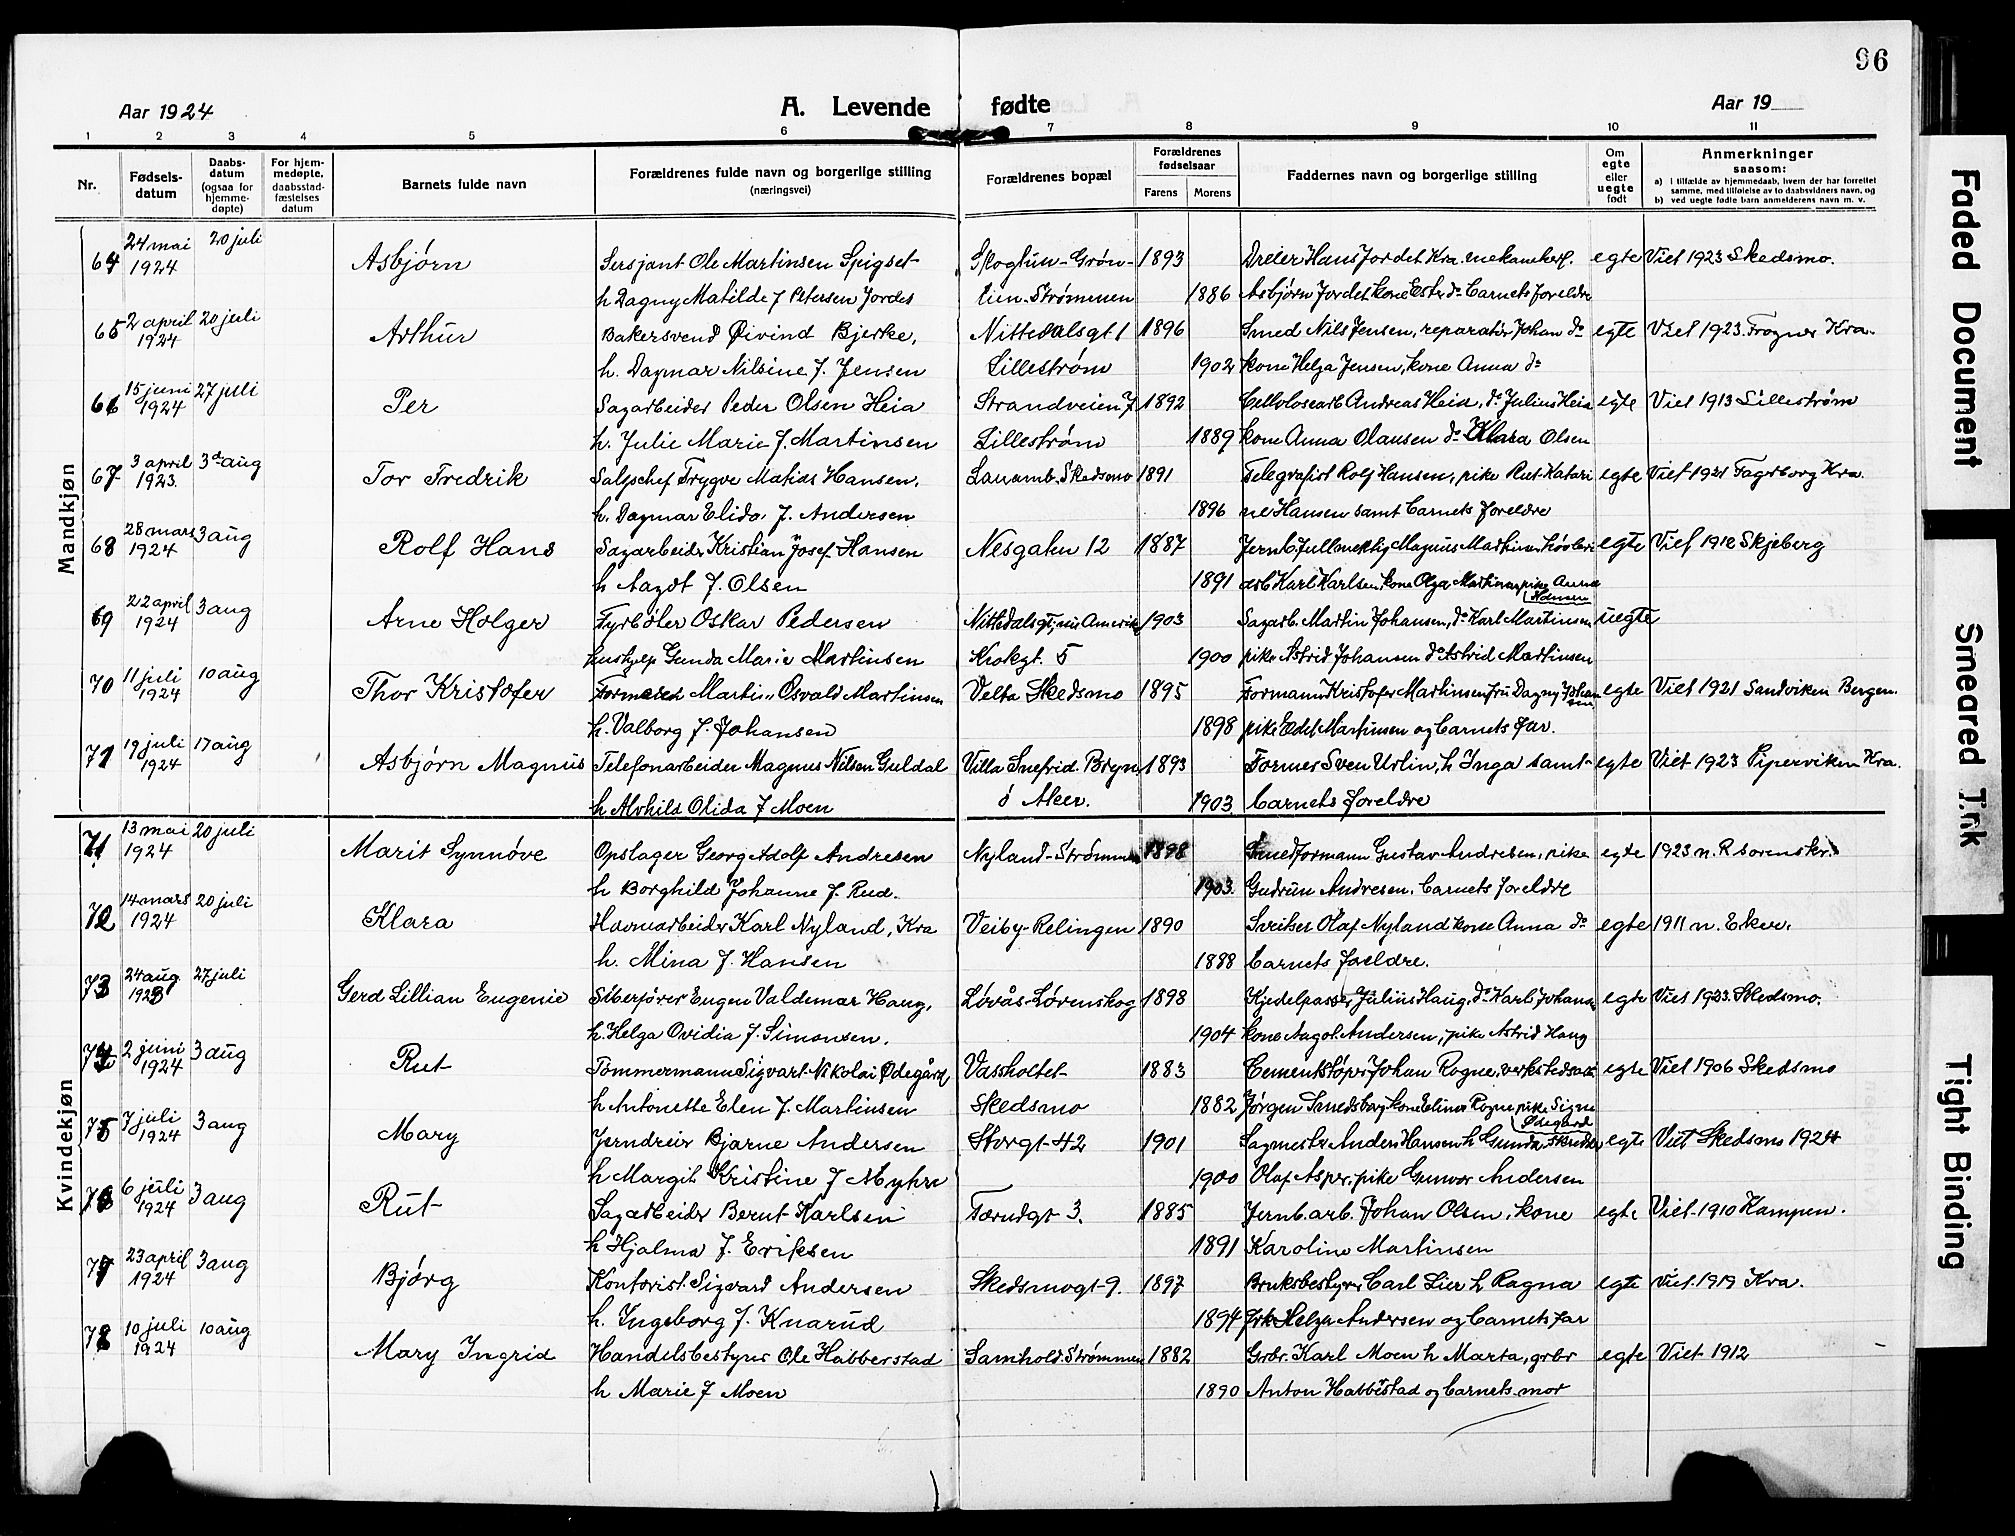 96
Aar 1924 A. Levende fødte Aar 19
1 2 3 4 5 6 7 8 9 10 11
Nr. Fødsels-datum Daabs-datum (ogsaa for hjemme-døpte) For hjem-medøpte, daabsstad-fæstelses datum Barnets fulde navn Forældrenes fulde navn og borgerlige stilling (næringsvei) Forældrenes bopæl Forældrenes fødselsaar Farens Morens Faddernes navn og borgerlige stilling Om egte eller uegte født Anmerkninger saasom:
a) i tilfælde av hjemmedaab, hvem der har forrettet samme, med tilføielse av to daabsvidners navn, og
b) ved uegte fødte barn anmelderens navn m. v.
Mandkjøn
64 24 mai 1924 20 juli Asbjørn Sersjant Ole Martinsen Spigset Skoglun-Grøn- 1893 Dreier Hans Jordet Kra. egte Viet 1923 Skedsmo.
h Dagny Matilde f Petersen Jordet lien-Strømmen 1886 Asbjørn Jordet kone Ester do Barnets foreldre
65 2 april 1924 20 juli Arthur Bakersvend Øivind Bjerke, Nittedalsgt 1 1896 Smed Nils Jensen, reparatør Johan do egte Viet 1923. Frogner Kra.
h. Dagmar Nilsine f. Jensen Lillestrøm 1902 kone Helga Jensen, kone Anna do
66 15 juni 1924 27 juli Per Sagarbeider Peder Olsen Heia Strandveien 7 1892 Cellulosearb Andreas Heia, do Julius Heia egte Viet 1913 Lillestrøm
h. Julie Marie f. Martinsen Lillestrøm 1889 kone Anna Olausen do Klara Olsen
67 3 april 1923. 3d aug Tor Fredrik Salgschef Trygve Matias Hansen, Skedsmo 1891 Telegrafist Rolf Hansen, pike Rut Katari egte Viet 1921 Fagerborg Kra.
h. Dagmar Elida. f. Andersen 1896 ne Hansen samt barnets foreldre
68 28 mars 1924 3 aug Rolf Hans Sagarbeider Kristian Josef Hansen Nesgaten 12 1887 Jernb. fullmektig Magnus Martinsen egte Viet 1912 Skjeberg
h Aagot f. Olsen 1891 arb Karl Karlsen, kone Olga Martinsen pike Anna Hansen
69 22 april 1924 3 aug Arne Holger Fyrbøter Oskar Pedersen Nittedalsgt; nu Amerika 1903 Sagarb. Martin Johansen, do Karl Martinsen uegte
hushjelp Gunda Marie Martinsen Krokgt. 5 1900 pike Astrid Johansen do Astrid Martinsen
70 11 juli 1924 10 aug Thor Kristofer Martin Osvald Martinsen Velta Skedsmo 1895 Formann Kristofer Martinsen fru Dagny Johansen egte Viet 1921 Sandviken Bergen.
h. Valborg f. Johansen 1898 pike Martinsen og barnets far.
71 19 juli 1924 17 aug Asbjørn Magnus Telefonarbeider Magnus Nilsen Guldal Villa Snefrid. Bryn 1893 Former Sven Urlin, h Inga samt egte Viet 1923 Piperviken Kra.
h Alvhild Olida f Moen ø Aker. 1903. barnets foreldre
Kvindekjøn
71 13 mai 1924 20 juli Marit Synnøve Opslager Georg Adolf Andresen Nyland-Strømmen 1898 Smedformann Gustav Andresen, pike egte 1923 n. R sorenskr.
h Borghild Johanne f. Rud. 1903. Gudrun Andresen. Barnets foreldre
72 14 mars 1924 20 juli Klara Havnearbeider Karl Nyland, Kra Veiby-Relingen 1890 Sveitser Olaf Nyland kone Anna do egte 1911 n. Eker.
h. Mina f. Hansen 1888 Barnets foreldre.
73 24 aug 1923 27 juli Gerd Lillian Eugenie Eugen Valdemar Haug, Løvås-Lørenskog 1898 Kjedelpasser Julius Haug. do Karl Johansen egte Viet 1923. Skedsmo.
h. Helga Ovidia f. Simensen. 1904 kone Aagot Andersen, pike Astrid Haug
74 2 juni 1924 3 aug Rut Tømmermann Sigvart Nikolai Ødegård Vassholtet 1883 Cementstøper Johan Rogne, verkstedsarb egte Viet 1906 Skedsmo
h Antonette Elen f. Martinsen Skedsmo 1882 Jørgen Smedsborg kone Eline Rogne pike Signe Ødegård
75 7 juli 1924 3 aug Mary Jerndreier Bjarne Andersen Storgt 42 1901 Sagmester Anders Hansen h Gunda, skredder egte Viet Skedsmo 1924
h Margit Kristine f Myhre 1900 Olaf Asper, pike Gunvor Andersen
76 6 juli 1924 3 aug Rut Sagarbeider Bernt Karlsen Tærudgt 3. 1885 Jernb. arb. Johan Olsen, kone egte Viet 1910 Kampen.
h Hjalma f. Eriksen 1891 Karoline Martinsen
77 23 april 1924 3 aug Bjørg Kontorist Sigvard Andersen Skedsmogt 9. 1897 Bruksbestyrer Carl Lier h Ragna egte Viet. 1919 Kra.
h. Ingeborg f. Knarud 1894 frk Helga Andersen og barnets far
78 10 juli 1924 10 aug Mary Ingrid Handelsbestyrer Ole Habberstad Samhold. Strømmen 1882 Grbr. Karl Moen h Marta, grbr egte Viet 1912
h Marie f Moen 1890 Anton Habberstad og barnets mor
Faded Document
Smeared Ink
Tight Binding